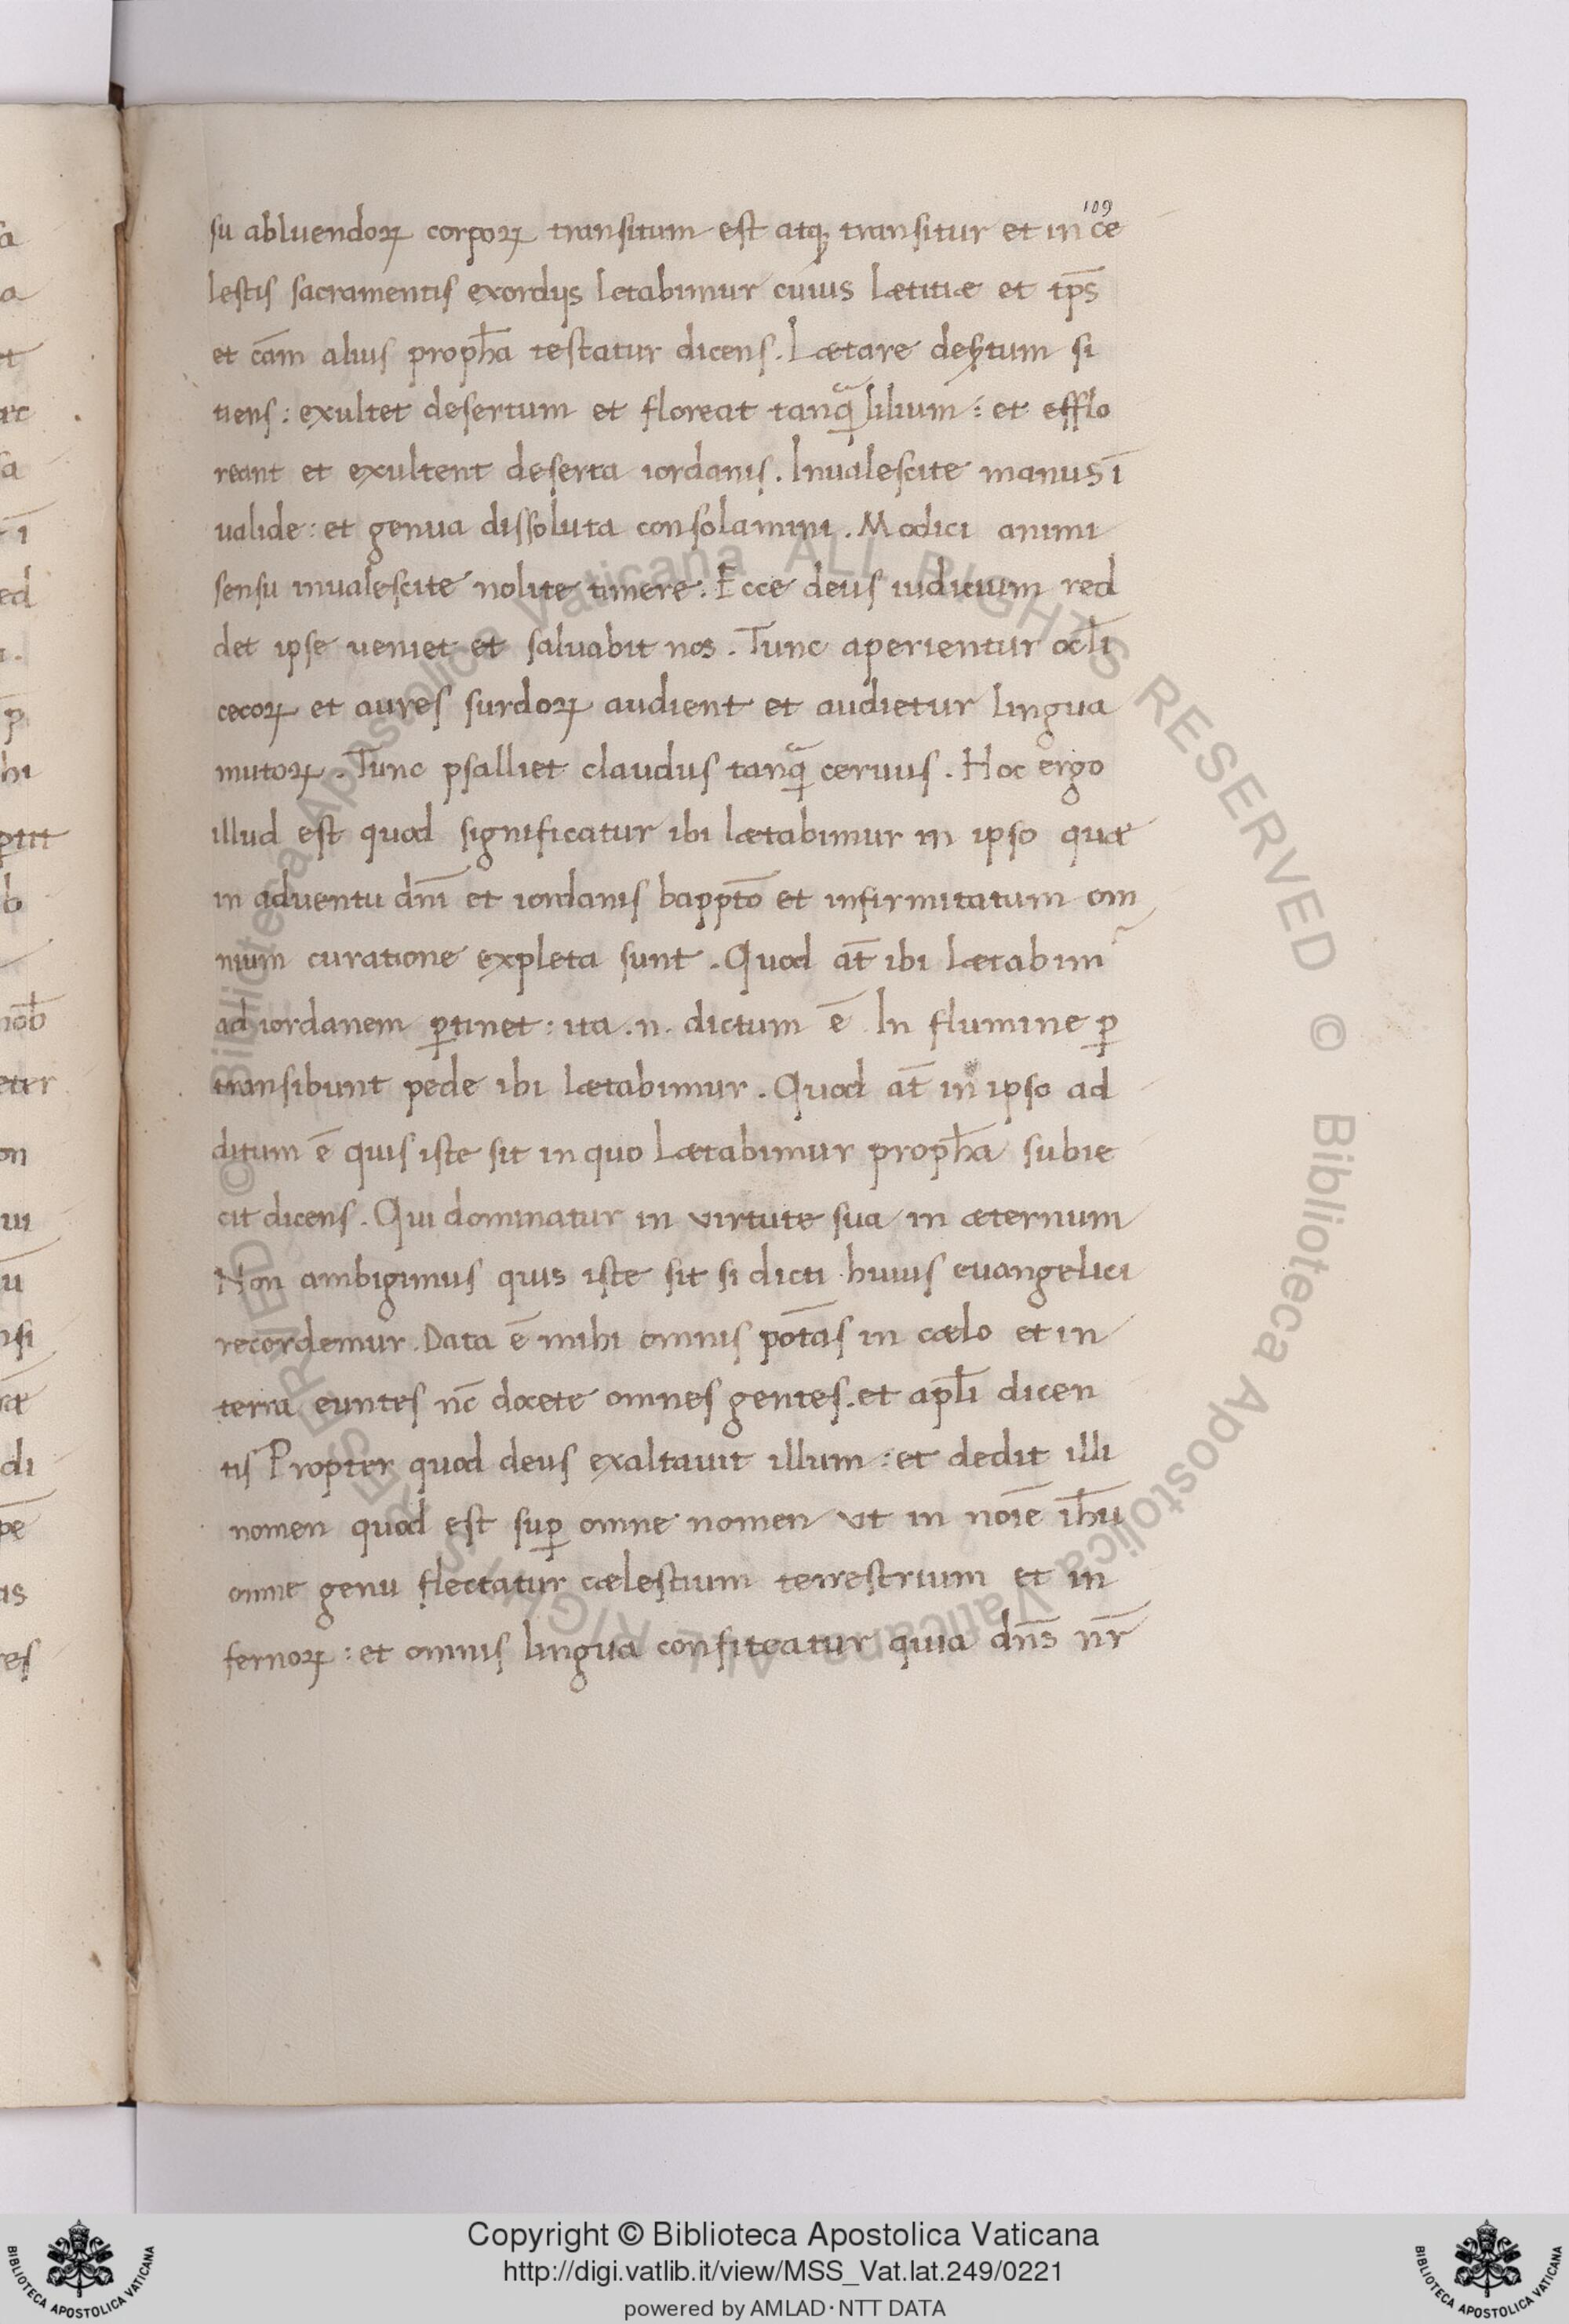 109
su abluendoꝝ corpoꝝ transitum est atqꝫ transitur et in ce
lestis sacramentis exordijs letabimur cuius lætitiæ et tp̄s
et cām alius proph̄a testatur dicens. Lætare desertum si
tiens: exultet desertum et floreat tanꝗᷓ lilium: et efflo
reant et exultent deserta iordanis. Inualescite manus ī
ualide: et genua dissoluta consolamini. Modici animi
sensu inualescite nolite timere. Ecce deus iudicium red
det ipse ueniet et saluabit nos. Tunc aperientur ocl̄i
cecoꝝ et aures surdoꝝ audient et audietur lingua
mutoꝝ. Tunc psalliet claudus tanꝗᷓ ceruus. Hoc ergo
illud est quod significatur ibi lætabimur in ipso quæ
in aduentu dn̄i et iordanis bappt̄o et infirmitatum om
nium curatione expleta sunt. Quod at̄ ibi lætabim̃
ad iordanem ꝑtinet: ita .n. dictum ē In flumine ꝑ
transibunt pede ibi lætabimur. Quod at̄ in ipso ad
ditum ē quis iste sit in quo lætabimur proph̄a subie
cit dicens. Qui dominatur in virtute sua in æternum
Non ambigimus quis iste sit si dicti huius euangelici
recordemur. Data ē mihi omnis pot̄as in cælo et in
terra euntes nc̄ docete omnes gentes. et apl̄i dicen
tis Propter quod deus exaltauit illum: et dedit illi
nomen quod est suꝑ omne nomen vt in noīe ih̄u
omne genu flectatur cælestium terrestrium et in
fernoꝝ: et omnis lingua confiteatur quia dn̄s nr̄
Copyright © Biblioteca Apostolica Vaticana
http://digi.vatlib.it/view/MSS_Vat.lat.249/0221
powered by AMLAD·NTT DATA